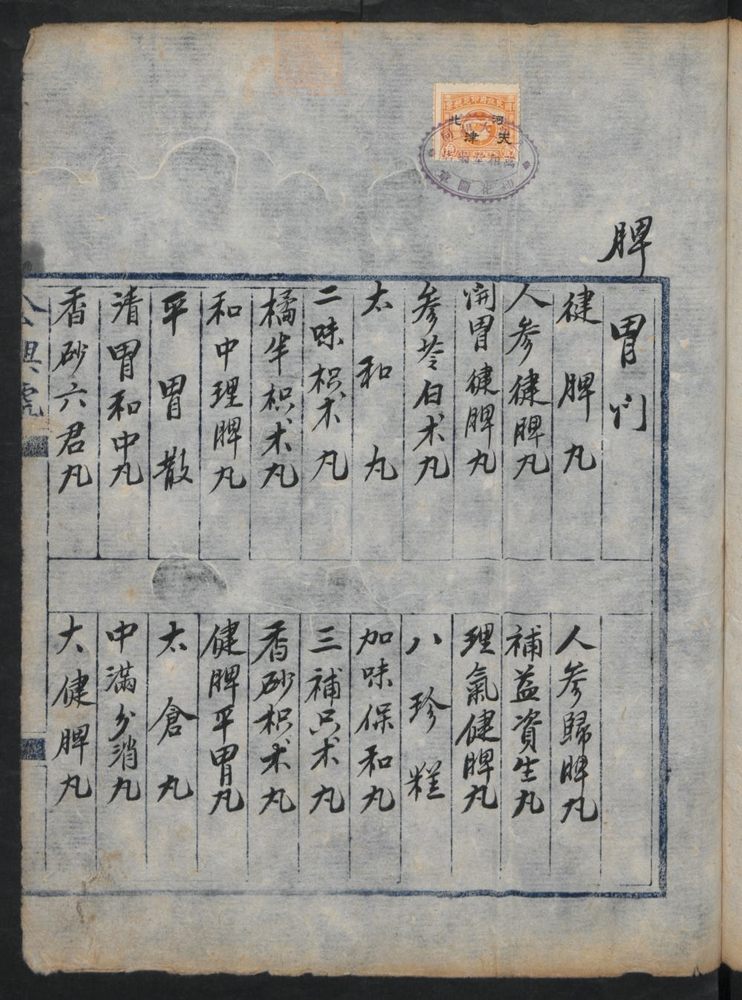 脾
胃门
健脾丸
人参健脾丸
開胃健脾丸
参苓白术丸
太和丸
二味枳术丸
橘半枳术丸
和中理脾丸
平胃散
清胃和中丸
香砂六君丸
人参歸脾丸
補益資生丸
理氣健脾丸
八珍糕
加味保和丸
三補只术丸
香砂枳术丸
健脾平胃丸
太倉丸
中滿分消丸
大健脾丸
河北
天津